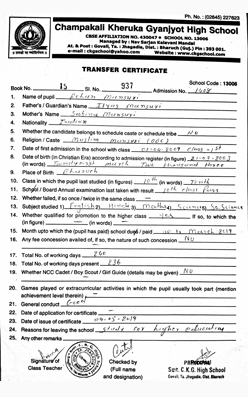 Ph. No. : (02645) 227623
Champakali Kheruka Gyanjyot High School
CBSE AFFILIATION NO. 430047 ★ SCHOOL NO. 13006
Managed by : Nav Sarjan Kelavani Mandal
At. & Post : Govali, Ta. : Jhagadia, Dist. : Bharuch (Guj.) Pin : 393 001.
e-mail : ckgschool@yahoo.com Website : www.ckgschool.com
TRANSFER CERTIFICATE
School Code : 13006
Book No. 15 Sl. No. 937 Admission No. 1608
1. Name of pupil Mansuri
2. Father's / Guardian's Name Iliyas Mansuri
3. Mother's Name Mansuri
4. Nationality Indian
5. Whether the candidate belongs to schedule caste or schedule tribe NO
6. Religion / Caste Muslim Mansuri (OBC)
7. Date of first admission in the school with class
8. Date of birth (in Christian Era) according to admission register (in figure) 21-03-2003
(in words) Twenty first march Two thousand three
9. Place of Birth Bharuch
10. Class in which the pupil last studied (in figures) 10th (in words) Tenth
11. School / Board Annual examination last taken with result 10th class Pass
12. Whether failed, if so once / twice in the same class —
13. Subject studied 1) English, Hindi, Maths, Science, So. Science
14. Whether qualified for promotion to the higher class Yes If so, to which the
(in figure) — (in words) —
15. Month upto which (the pupil has paid) school dues / paid up to March 2019
16. Any fee concession availed of, if so, the nature of such concession NO
17. Total No. of working days 240
18. Total No. of working days present 236
19. Whether NCC Cadet / Boy Scout / Girl Guide (details may be given) NO
20. Games played or extracurricular activities in which the pupil usually took part (mention
achievement level therein)
21. General conduct Good
22. Date of application for certificate —
23. Date of issue of certificate 09-05-2019
24. Reasons for leaving the school study for higher education
25. Any other remarks
Signature of
Class Teacher
Checked by
(Full name
and designation)
Szit. C. K. G. High School
Govali, Ta. Jhagadia, Dist. Bharuch